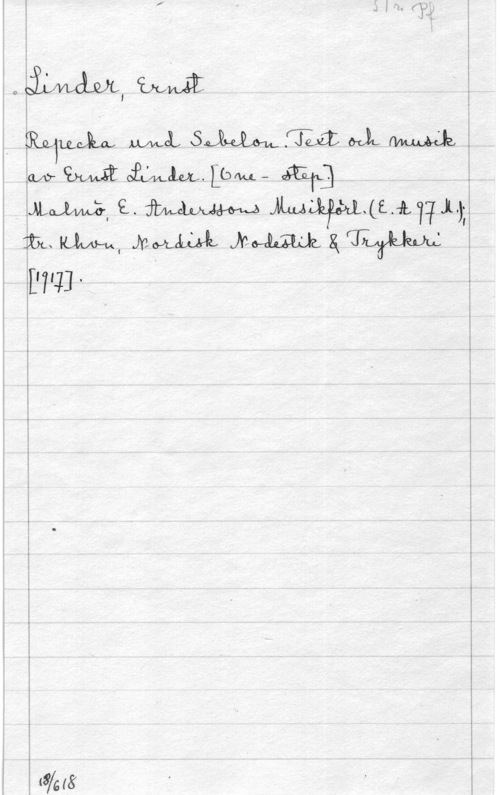 S/r Pf
Linder, Ernst
Repecka und Sebelon. Text och musik
av Ernst Linder. [One-step.]
Malmö, E. Anderssons Musikförl. (E. A 97 M.);
tr. Khvn, Nordisk Nodestik & Trykkeri
[1917].
18/618